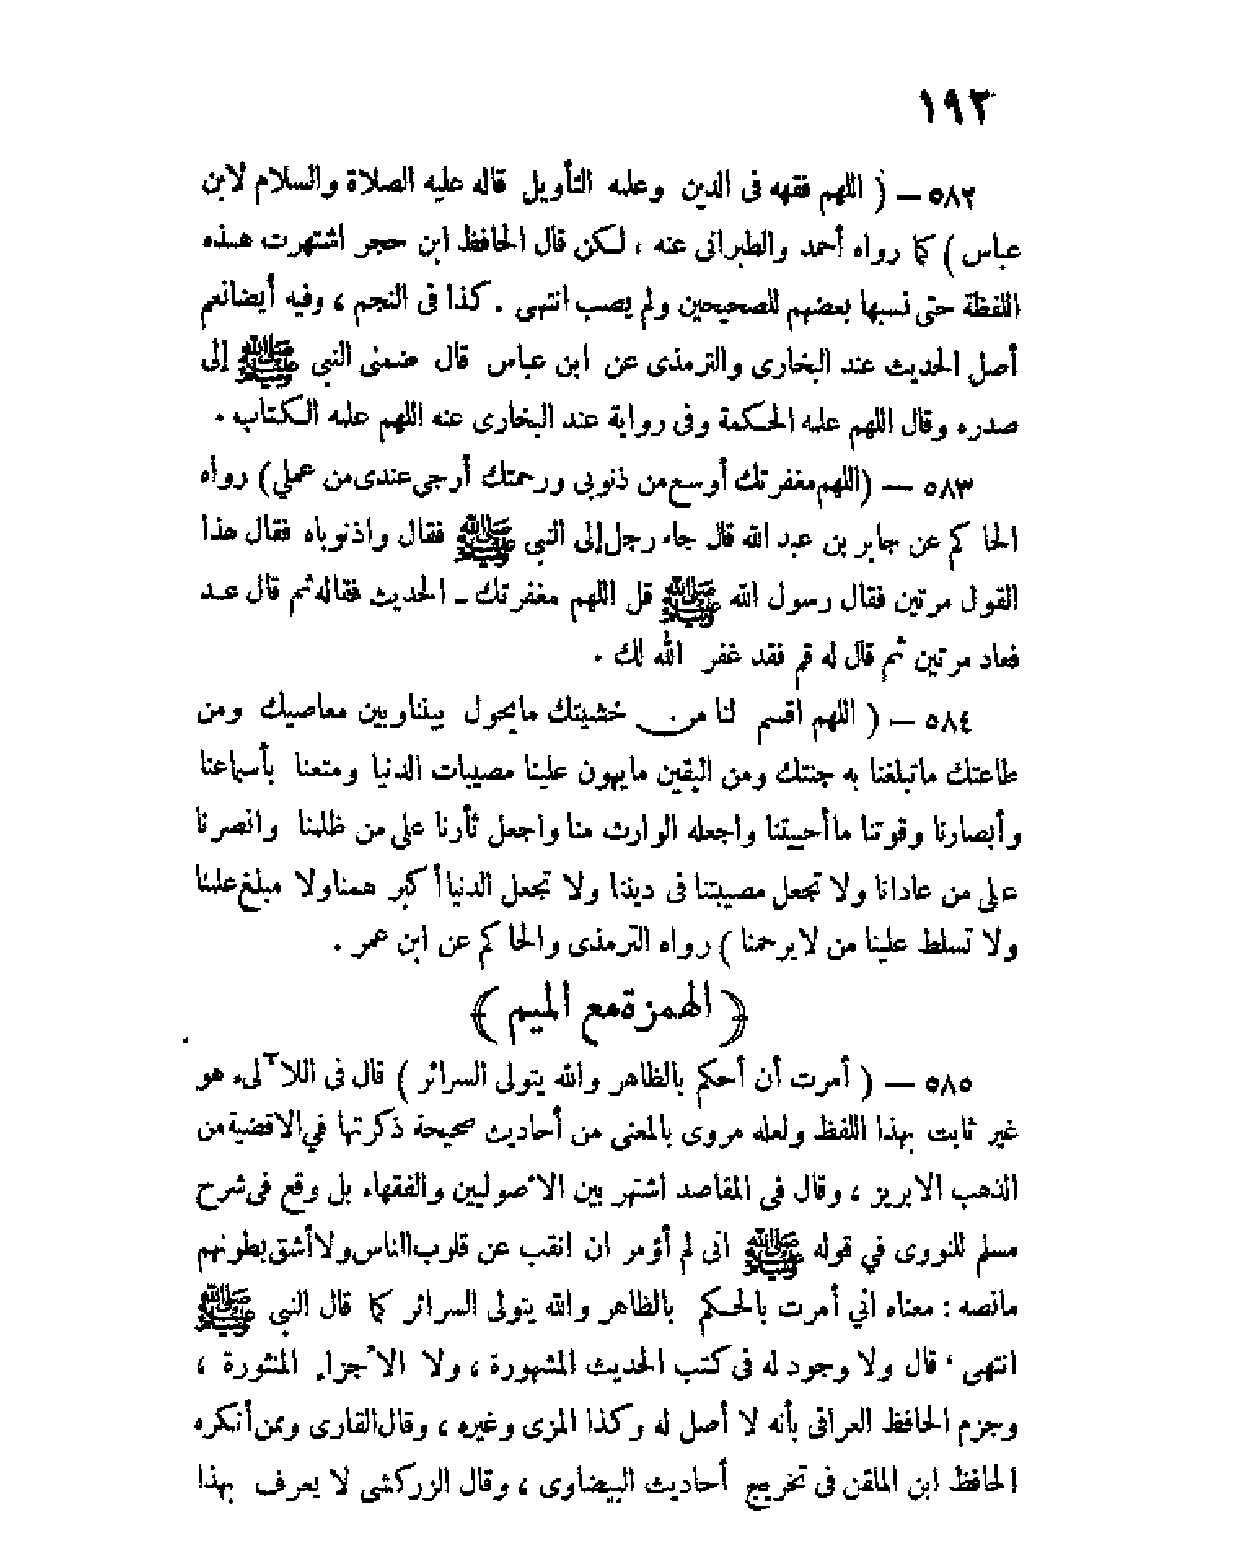 ١٩٢
٥٨٢ — ( اللهم فقهه فى الدين وعلمه التأويل قاله عليه الصلاة والسلام لابن
عباس ) كما رواه أحمد والطبرانى عنه ، لكن قال الحافظ ابن حجر اشتهرت هذه
اللفظة حتى نسبها بعضهم للصحيحين ولم يصب انتهى . كذا فى النجم ، وفيه أيضانعم
أصل الحديث عند البخارى والترمذى عن ابن عباس قال ضمنى النبي ﷺ إلى
صدره وقال اللهم علمه الحكمة وفى رواية عند البخارى عنه اللهم علمه الكتاب .
٥٨٣ — (اللهم مغفرتك أوسع من ذنوبى ورحمتك أرجى عندى من عملي) رواه
الحاكم عن جابر بن عبد الله قال جاء رجل إلى النبي ﷺ فقال واذنوباه فقال هذا
القول مرتين فقال رسول الله ﷺ قل اللهم مغفرتك ـ الحديث فقاله ثم قال عد
فعاد مرتين ثم قال له قم فقد غفر الله لك .
٥٨٤ — ( اللهم اقسم لنا من خشيتك مايحول بيننا وبين معاصيك ومن
طاعتك ماتبلغنا به جنتك ومن اليقين مايهون علينا مصيبات الدنيا ومتعنا بأسماعنا
وأبصارنا وقوتنا ماأحييتنا واجعله الوارث منا واجعل ثأرنا على من ظلمنا وانصرنا
على من عادانا ولا تجعل مصيبتنا فى ديننا ولا تجعل الدنيا أكبر همنا ولا مبلغ علمنا
ولا تسلط علينا من لايرحمنا ) رواه الترمذى والحاكم عن ابن عمر .
﴿ الهمزة مع الميم ﴾
٥٨٥ — ( أمرت أن أحكم بالظاهر والله يتولى السرائر ) قال فى اللآلىء هو
غير ثابت بهذا اللفظ ولعله مروى بالمعنى من أحاديث صحيحة ذكرتها في الاقضية من
الذهب الابريز ، وقال فى المقاصد اشتهر بين الأصوليين والفقهاء بل وقع فى شرح
مسلم للنووى في قوله ﷺ انى لم أؤمر ان انقب عن قلوب الناس ولا أشق بطونهم
مانصه : معناه اني أمرت بالحكم بالظاهر والله يتولى السرائر كما قال النبي ﷺ
انتهى ، قال ولا وجود له فى كتب الحديث المشهورة ، ولا الأجزاء المنثورة ،
وجزم الحافظ العراقى بأنه لا أصل له وكذا المزى وغيره ، وقال القارى وممن أنكره
الحافظ ابن الملقن فى تخريج أحاديث البيضاوى ، وقال الزركشى لا يعرف بهذا